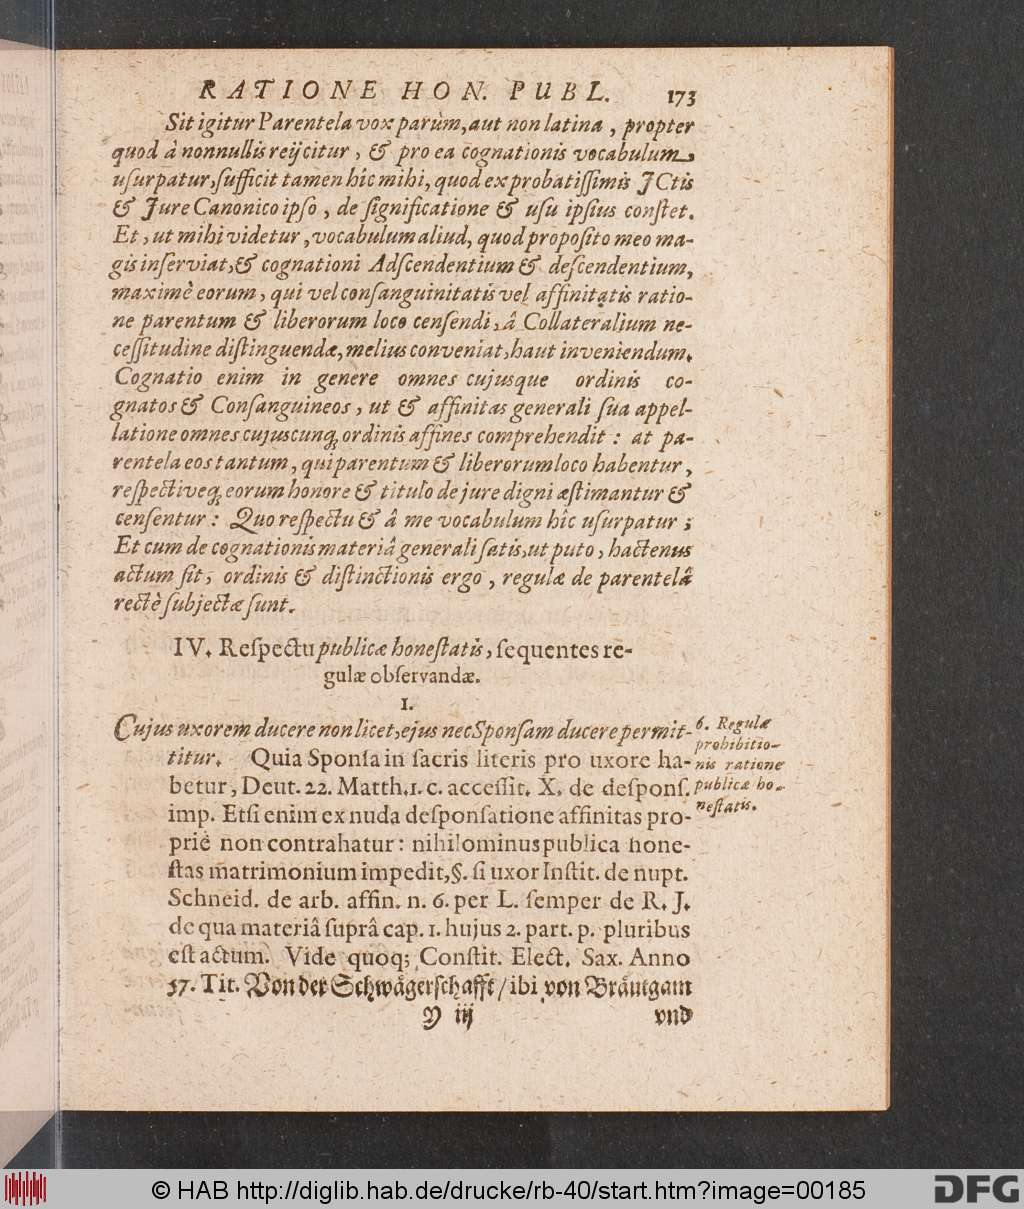 RATIONE HON. PUBL. 173
Sit igitur Parentela vox parùm, aut non latina, propter
quod à nonnullis reijcitur, & pro ea cognationis vocabulum
usurpatur, sufficit tamen hîc mihi, quod ex probatissimis JCtis
& Jure Canonico ipso, de significatione & usu ipsius constet.
Et, ut mihi videtur, vocabulum aliud, quod proposito meo ma-
gis inserviat, & cognationi Adscendentium & descendentium,
maximè eorum, qui vel consanguinitatis vel affinitatis ratio-
ne parentum & liberorum loco censendi, â Collateralium ne-
cessitudine distinguendæ, melius conveniat, haut inveniendum.
Cognatio enim in genere omnes cujusque ordinis co-
gnatos & Consanguineos, ut & affinitas generali sua appel-
latione omnes cujuscunq; ordinis affines comprehendit: at pa-
rentela eos tantum, qui parentum & liberorum loco habentur,
respectiveq; eorum honore & titulo de jure digni æstimantur &
censentur: Quo respectu & â me vocabulum hîc usurpatur;
Et cum de cognationis materiâ generali satis, ut puto, hactenus
actum sit, ordinis & distinctionis ergo, regulæ de parentelâ
rectè subjectæ sunt.
IV. Respectu publicæ honestatis, sequentes re-
gulæ observandæ.
I.
Cujus uxorem ducere non licet, ejus nec Sponsam ducere permit-
titur. Quia Sponsa in sacris literis pro uxore ha-
betur, Deut. 22. Matth. 1. c. accessit. X. de despons.
imp. Etsi enim ex nuda desponsatione affinitas pro-
priè non contrahatur: nihilominus publica hone-
stas matrimonium impedit, §. si uxor Instit. de nupt.
Schneid. de arb. affin. n. 6. per L. semper de R. J.
de qua materiâ suprâ cap. 1. hujus 2. part. p. pluribus
est actum. Vide quoq; Constit. Elect. Sax. Anno
57. Tit. Von der Schwågerschafft / ibi von Bråutgam
Y iij vnd
6. Regulæ
prohibitio-
nis ratione
publicæ ho-
nestatis.
© HAB http://diglib.hab.de/drucke/rb-40/start.htm?image=00185
DFG